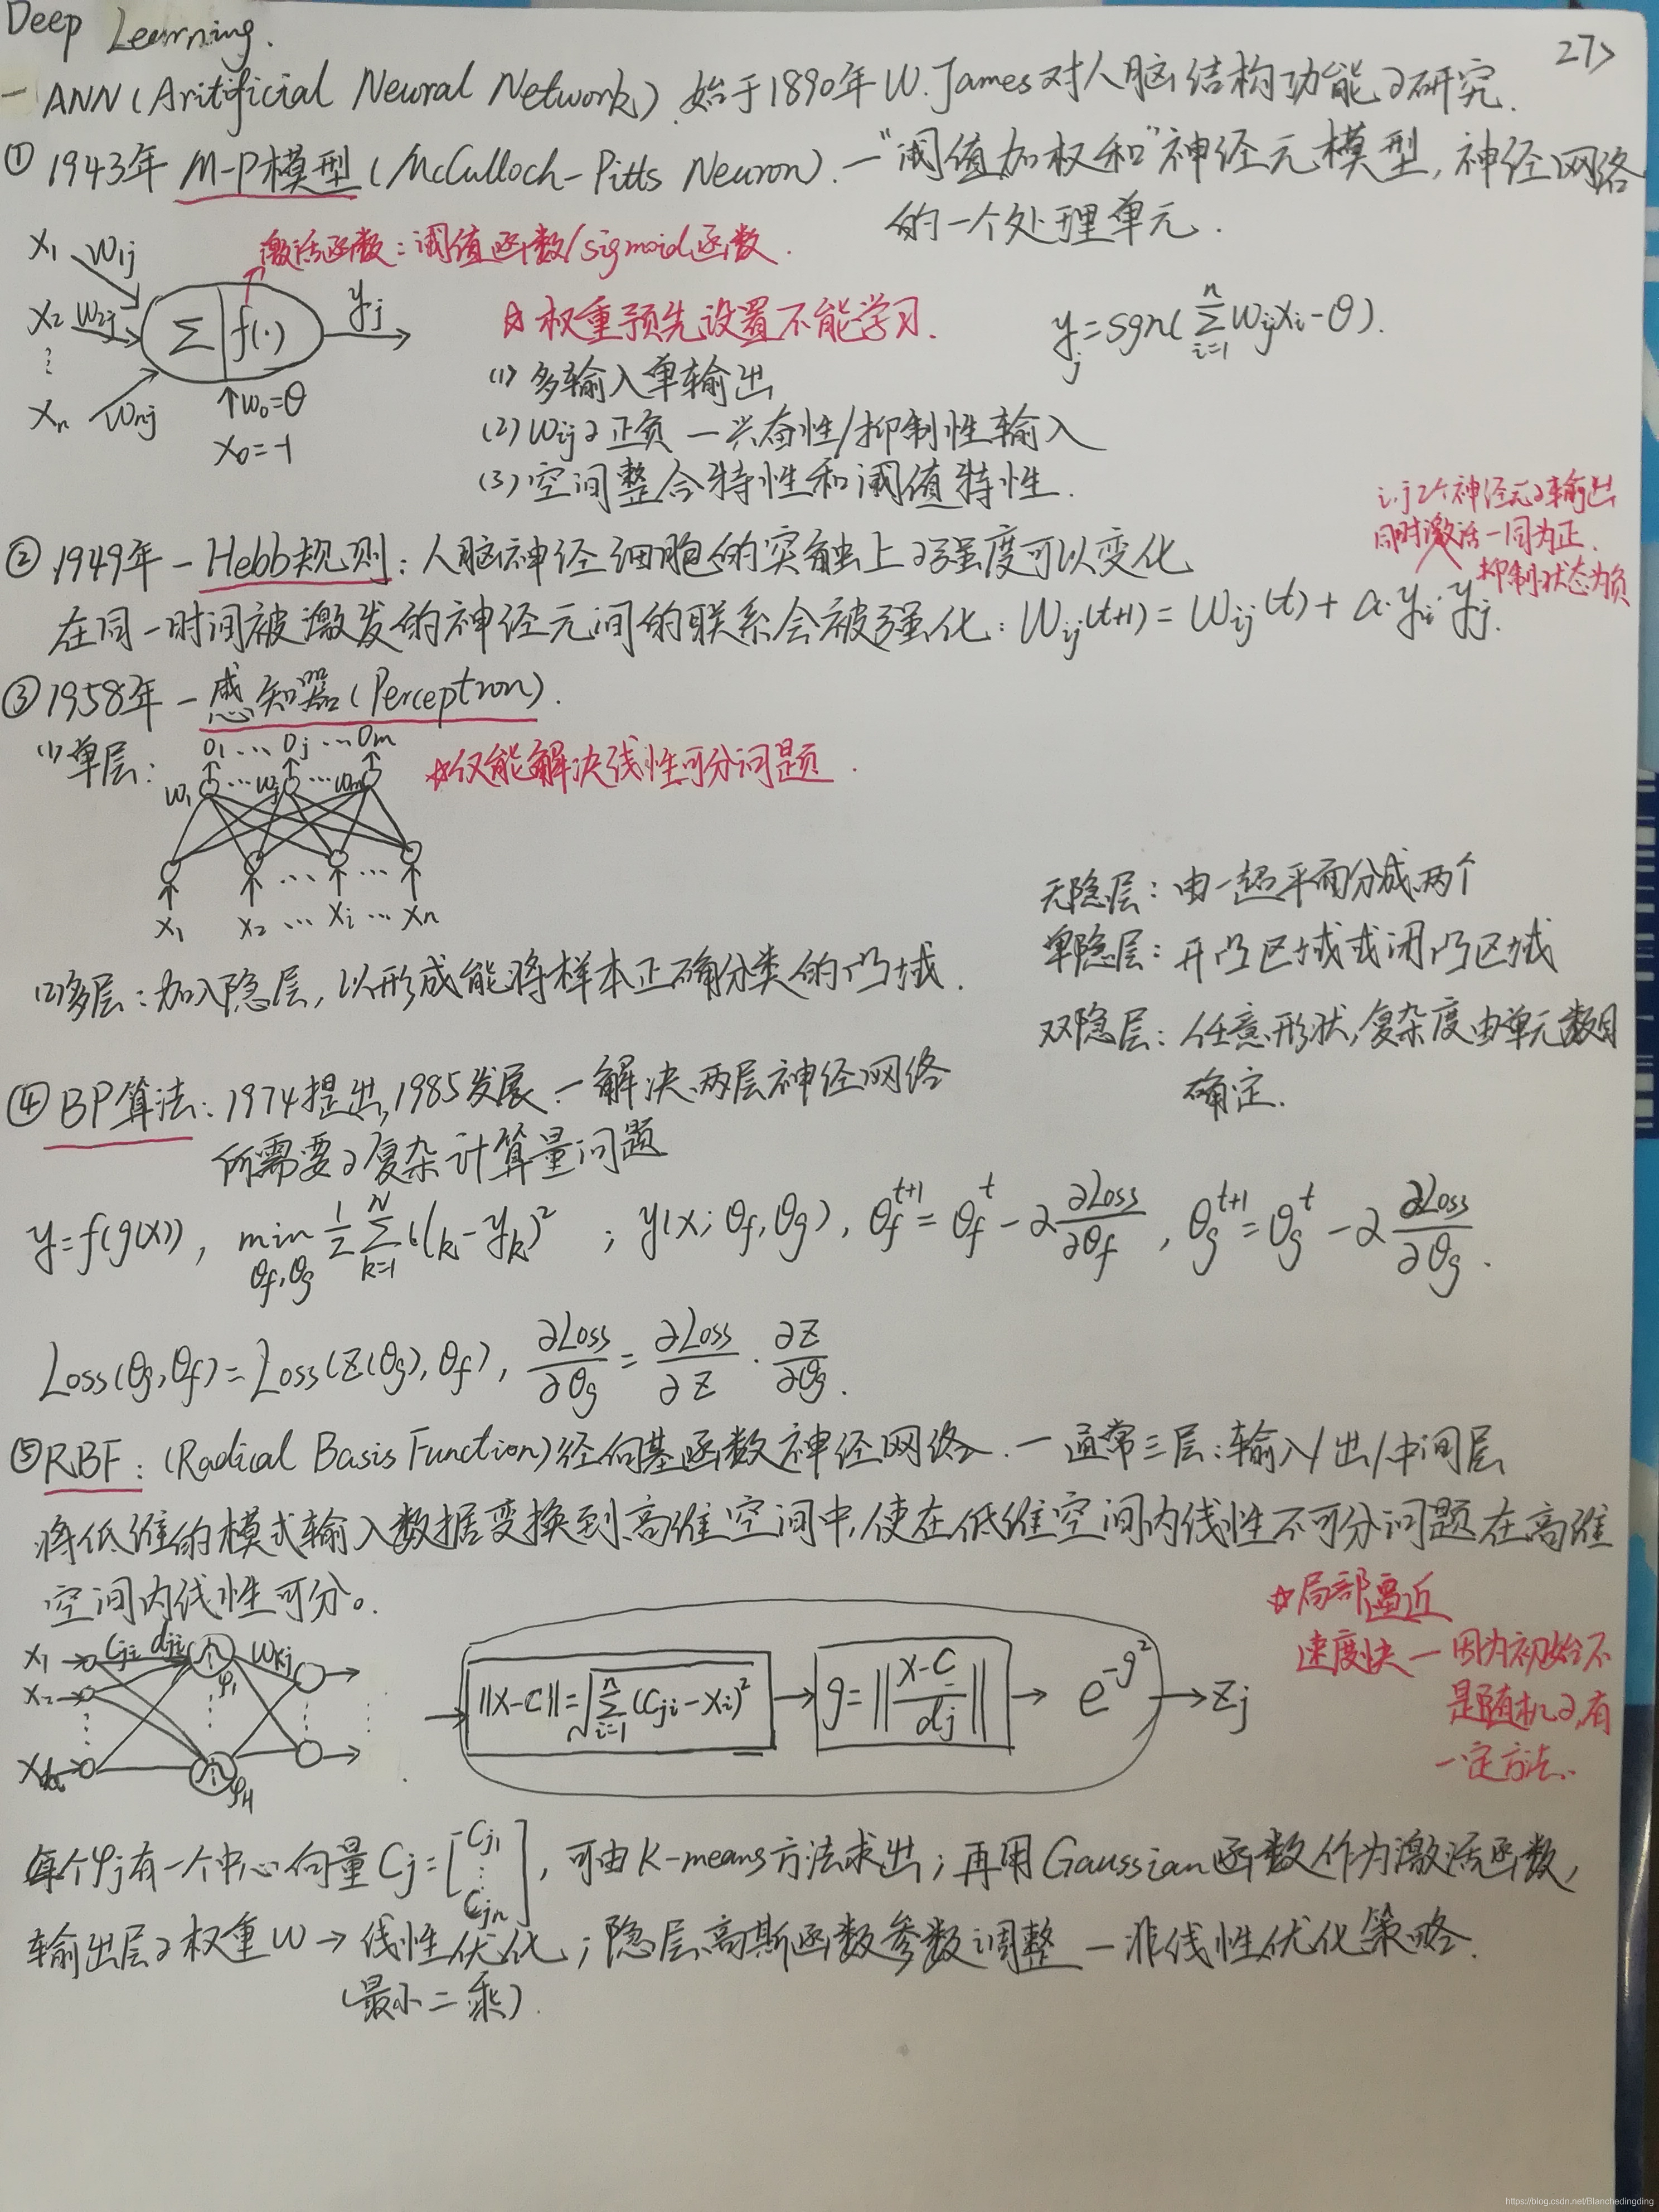 Deep Learning.
27>
一 ANN(Aritificial Neural Network). 始于1890年W.James对人脑结构功能的研究.
① 1943年 M-P模型(McCulloch-Pitts Neuron). 一"阈值加权和"神经元模型, 神经网络
的一个处理单元.
激活函数: 阈值函数/sigmoid函数.
x₁ w₁j
x₂ w₂j
⋮
xₙ wₙj
Σ f(·) yj
↑w₀=θ
x₀=-1
☆ 权重预先设置不能学习.
yj=sgn(Σ_{i=1}^{n} wij xi-θ).
(1) 多输入单输出
(2) wij的正负 — 兴奋性/抑制性输入
(3) 空间整合特性和阈值特性.
i,j2个神经元的输出
同时激活—同为正.
抑制状态为负
② 1949年 — Hebb规则: 人脑神经细胞的突触上的强度可以变化
在同一时间被激发的神经元间的联系会被强化: Wij(t+1) = Wij(t) + a·yi·yj.
③ 1958年 — 感知器(Perceptron).
(1)单层:
O₁ … Oj … Om
w₁ … wj … wm
☆仅能解决线性可分问题.
x₁ x₂ … xi … xn
无隐层: 由一超平面分成两个
单隐层: 开凸区域或闭凸区域
(2)多层: 加入隐层, 以形成能将样本正确分类的凸域.
双隐层: 任意形状, 复杂度由单元数目
确定.
④ BP算法: 1974提出, 1985发展 — 解决两层神经网络
所需要的复杂计算量问题
y=f(g(x)), min_{θf,θg} 1/2 Σ_{k=1}^{N} (lk-yk)² ; y(x; θf,θg), θf^{t+1} = θf^t - α ∂Loss/∂θf, θg^{t+1} = θg^t - α ∂Loss/∂θg.
Loss(θg,θf)=Loss(z(θg),θf), ∂Loss/∂θg = ∂Loss/∂z · ∂z/∂θg.
⑤ RBF: (Radical Basis Function)径向基函数神经网络. — 通常三层: 输入/出/中间层
将低维的模式输入数据变换到高维空间中, 使在低维空间内线性不可分问题在高维
空间内线性可分。
☆局部逼近
速度快 — 因为初始不
是随机的,有
一定方法.
x₁ cji dji φ₁ wkj
x₂
⋮
φH
||x-c||=√(Σ_{i=1}^{n}(cji-xi)²) → g=||(x-c)/dj|| → e^{-g²} → zj
每个φj有一个中心向量Cj=[Cj1 ⋮ Cjn], 可由K-means方法求出; 再用Gaussian函数作为激活函数,
输出层的权重w → 线性优化; 隐层高斯函数参数调整 — 非线性优化策略.
(最小二乘).
https://blog.csdn.net/Blanchedingding